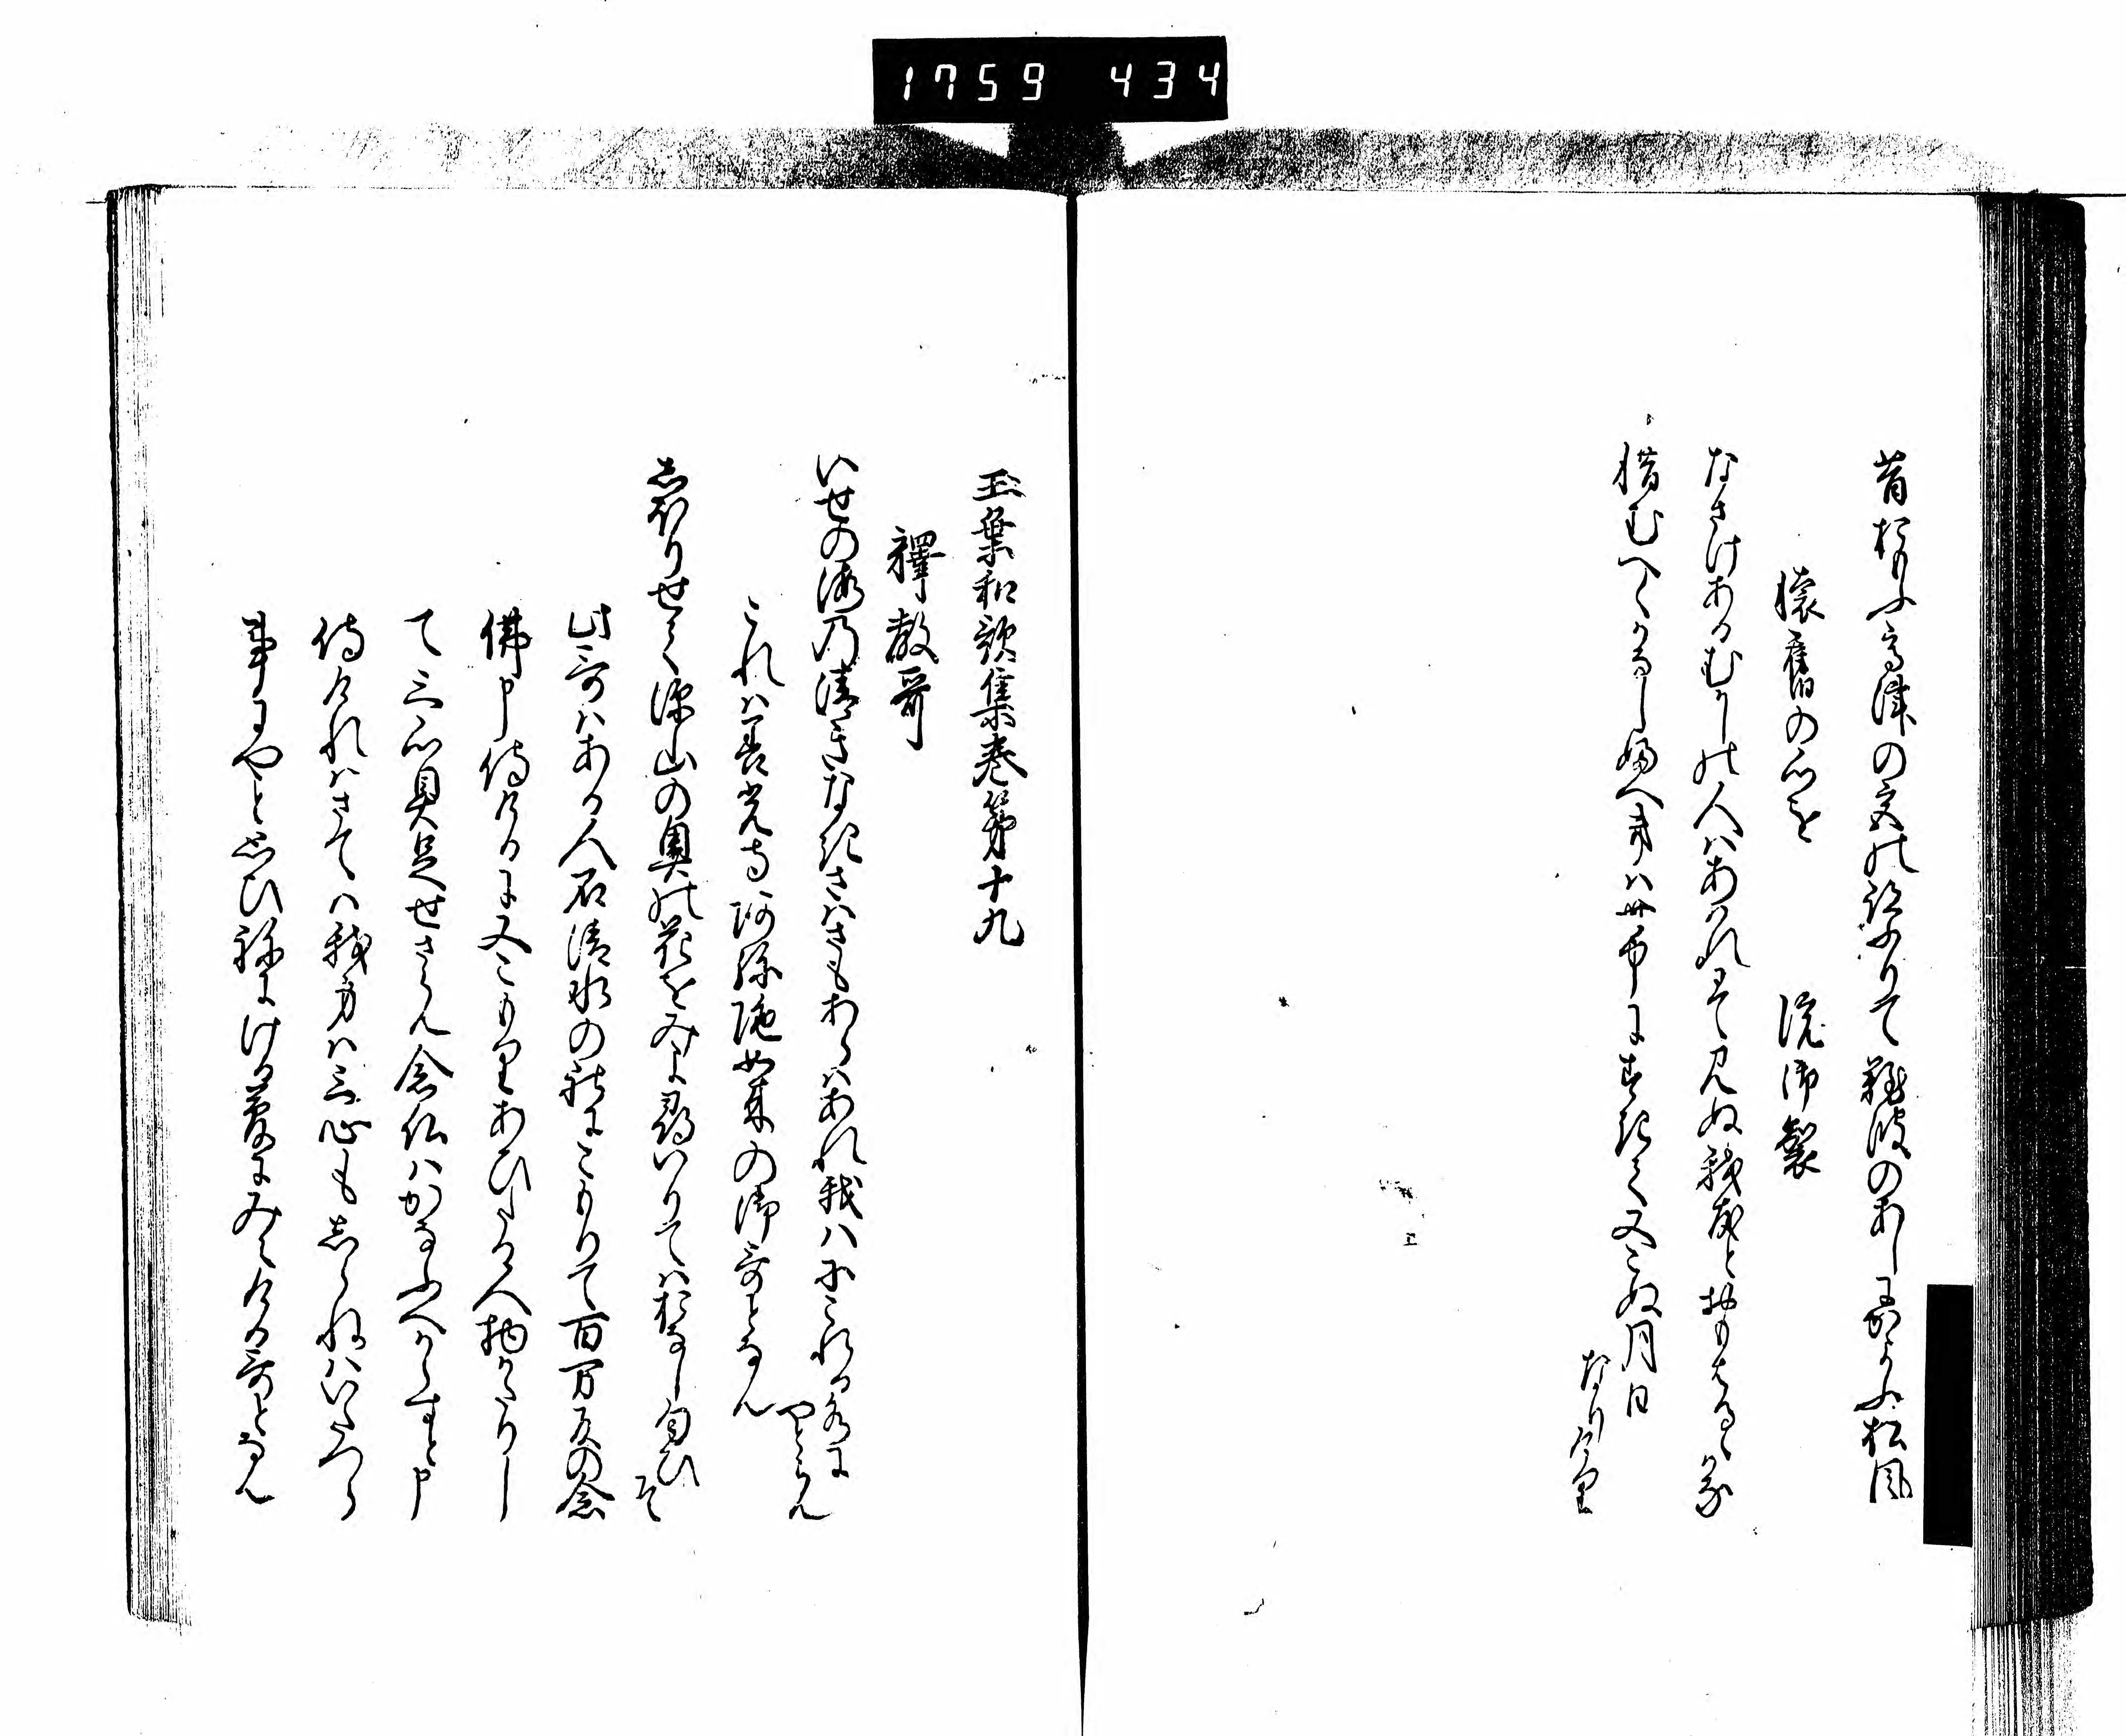 1759 434
昔おもふ高津の宮の跡ふりて難波のあしにかよふ松風
懐旧の心を　院御製
なさけあるむかしの人はあはれにて見ぬ我友とおもはるゝかな
惜むへくかなしふへきは世中にすきて又こぬ月日
なりけり
玉葉和歌集巻第十九
釋教哥
いせの海の清きなきさはさもあらはあれ我はにこれる水に
やとらん
これは善光寺阿弥陀如来の御哥となん
しほりせて深山の奥の花をみよ尋いりてはおなし匂ひ
そ
此哥はある人石清水の社にこもりて百万反の念
佛申侍けるに又こもりあひたる人物かたりし
て三心具足せさらん念仏はかなふへからすと申
侍けれはさては我身は三心もしらねはいたつら
事にやと思ひねにける夢にみえける哥となん